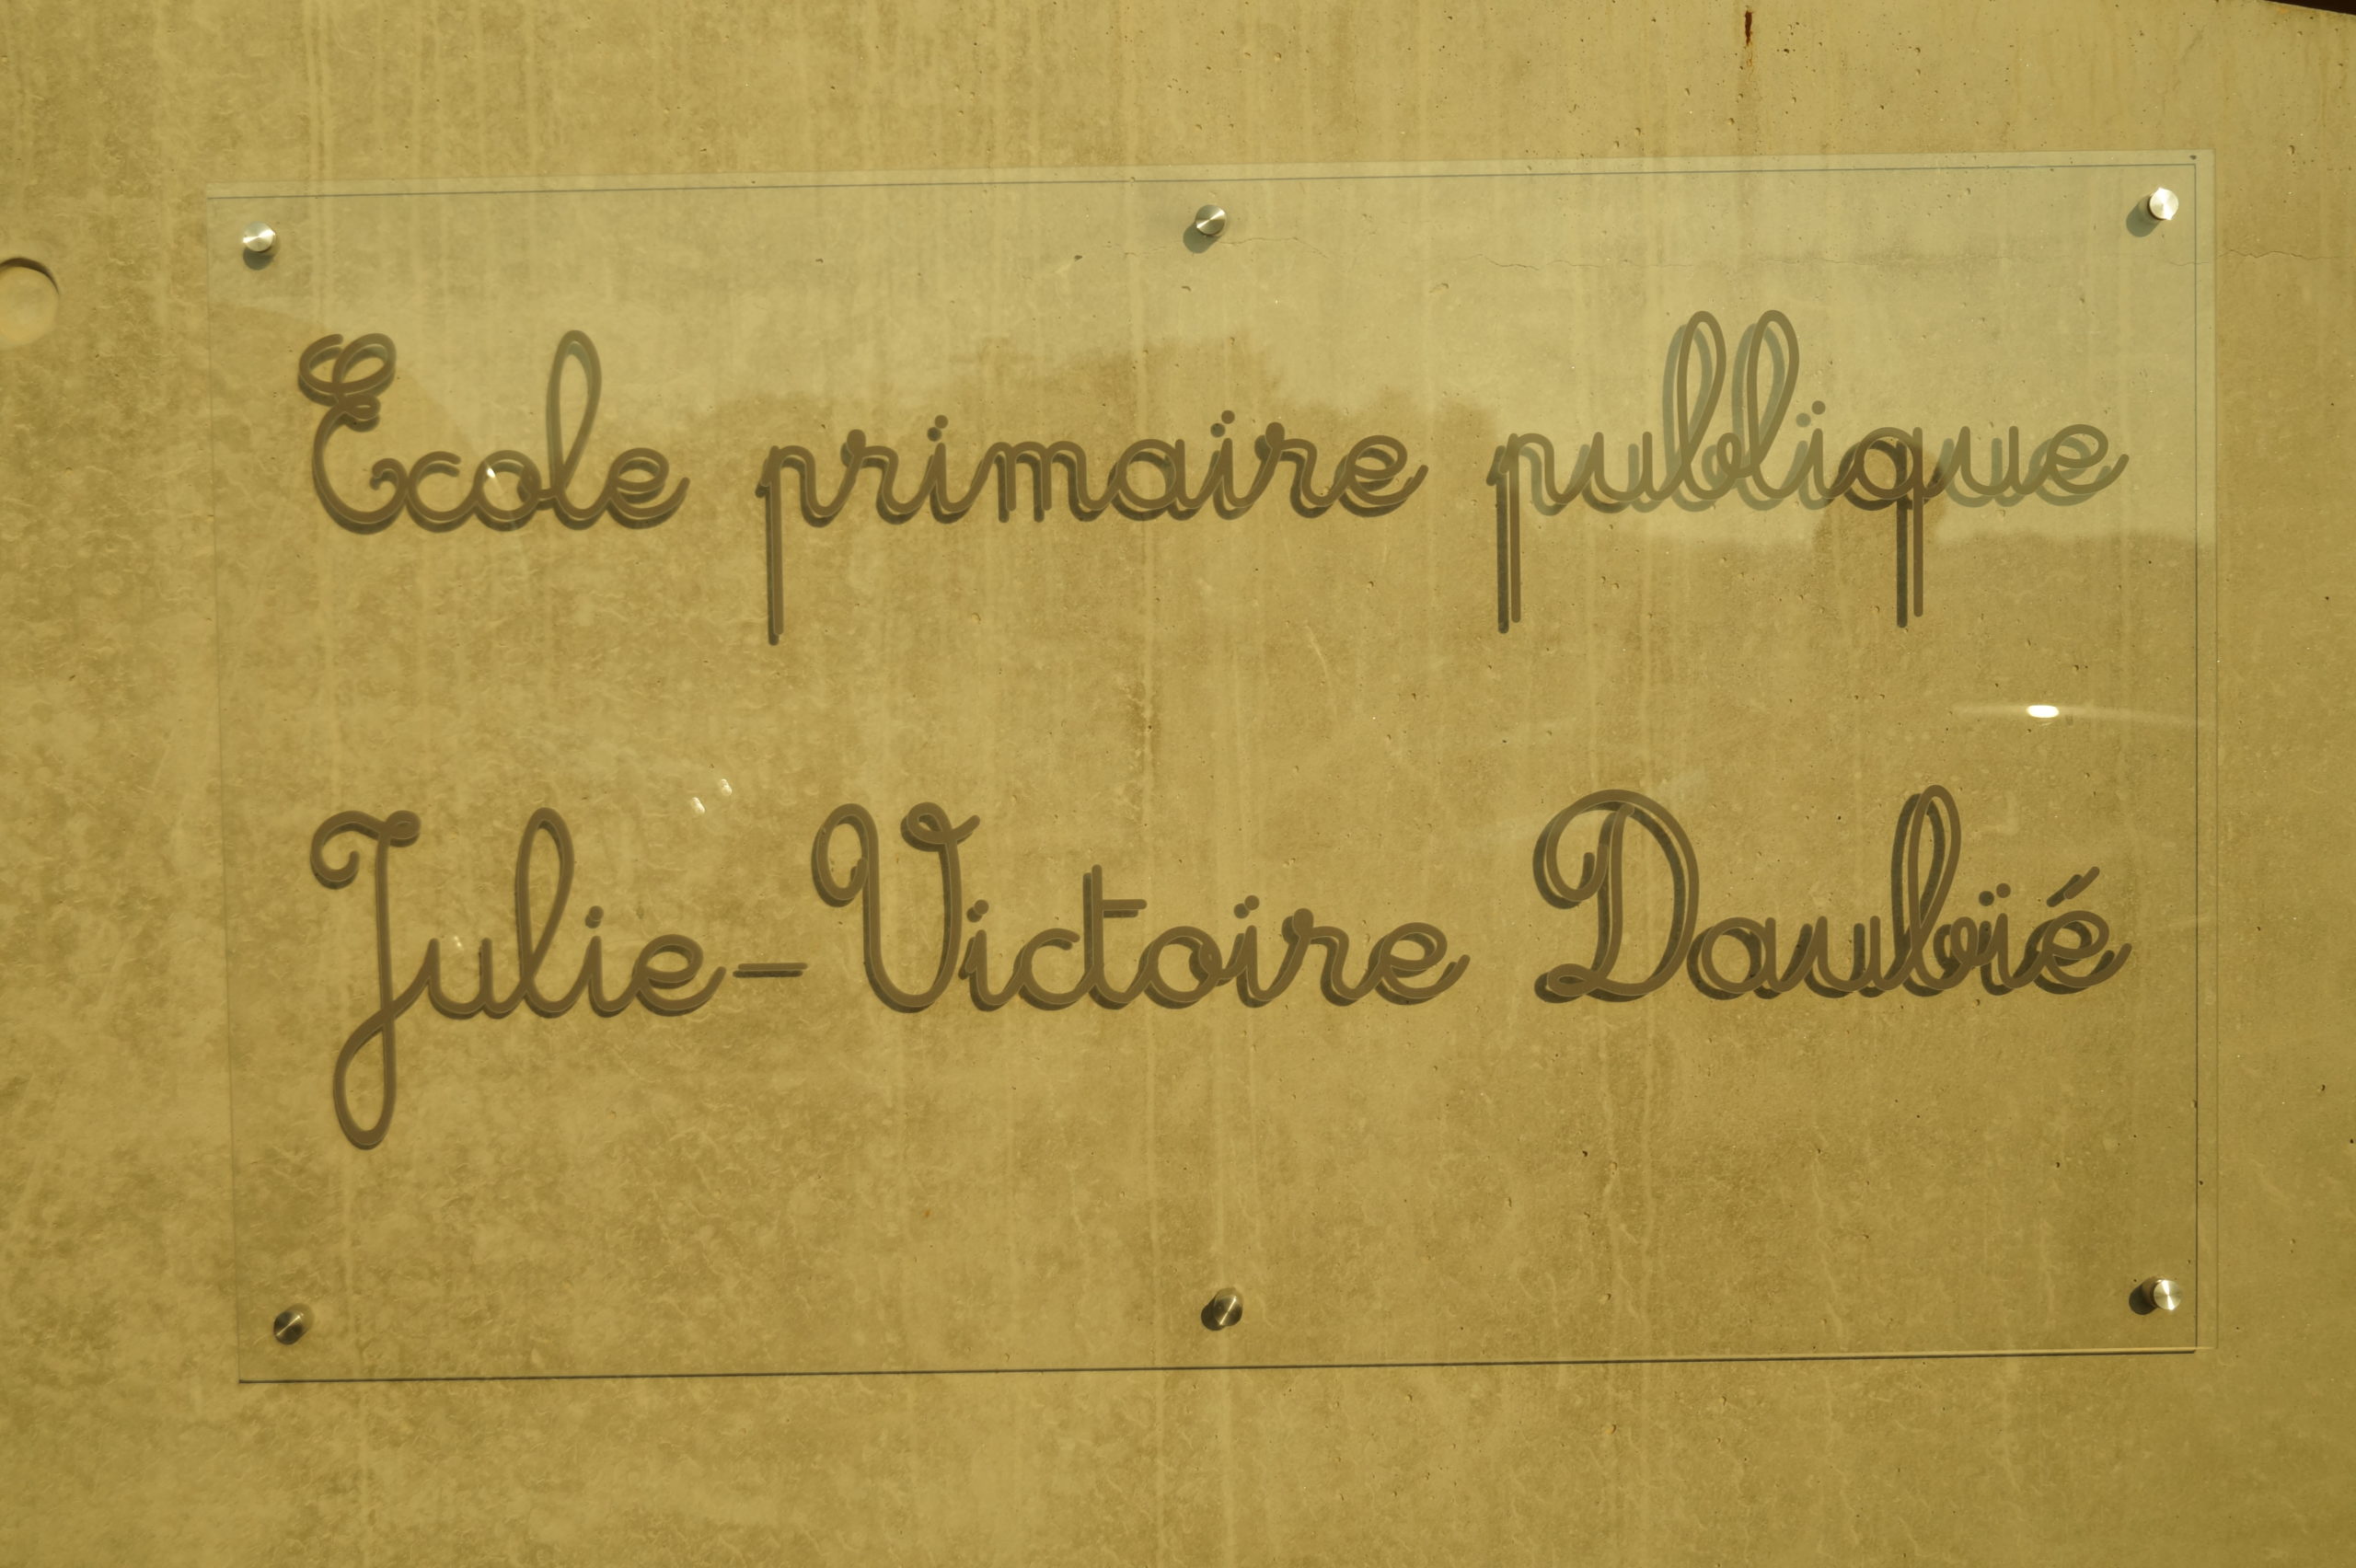 Ecole primaire publique
Julie-Victoire Daubié